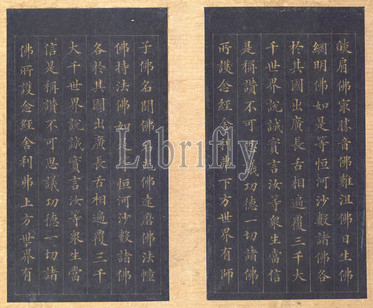 燄肩佛最勝音佛難沮佛日生佛
網明佛如是等恒河沙數諸佛各
於其國出廣長舌相遍覆三千大
千世界說誠實言汝等衆生當信
是稱讚不可思議功德一切諸佛
所護念經舍利弗下方世界有師
子佛名聞佛名光佛達磨佛法幢
佛持法佛如是等恒河沙數諸佛
各於其國出廣長舌相遍覆三千
大千世界說誠實言汝等衆生當
信是稱讚不可思議功德一切諸
佛所護念經舍利弗上方世界有
Librifly